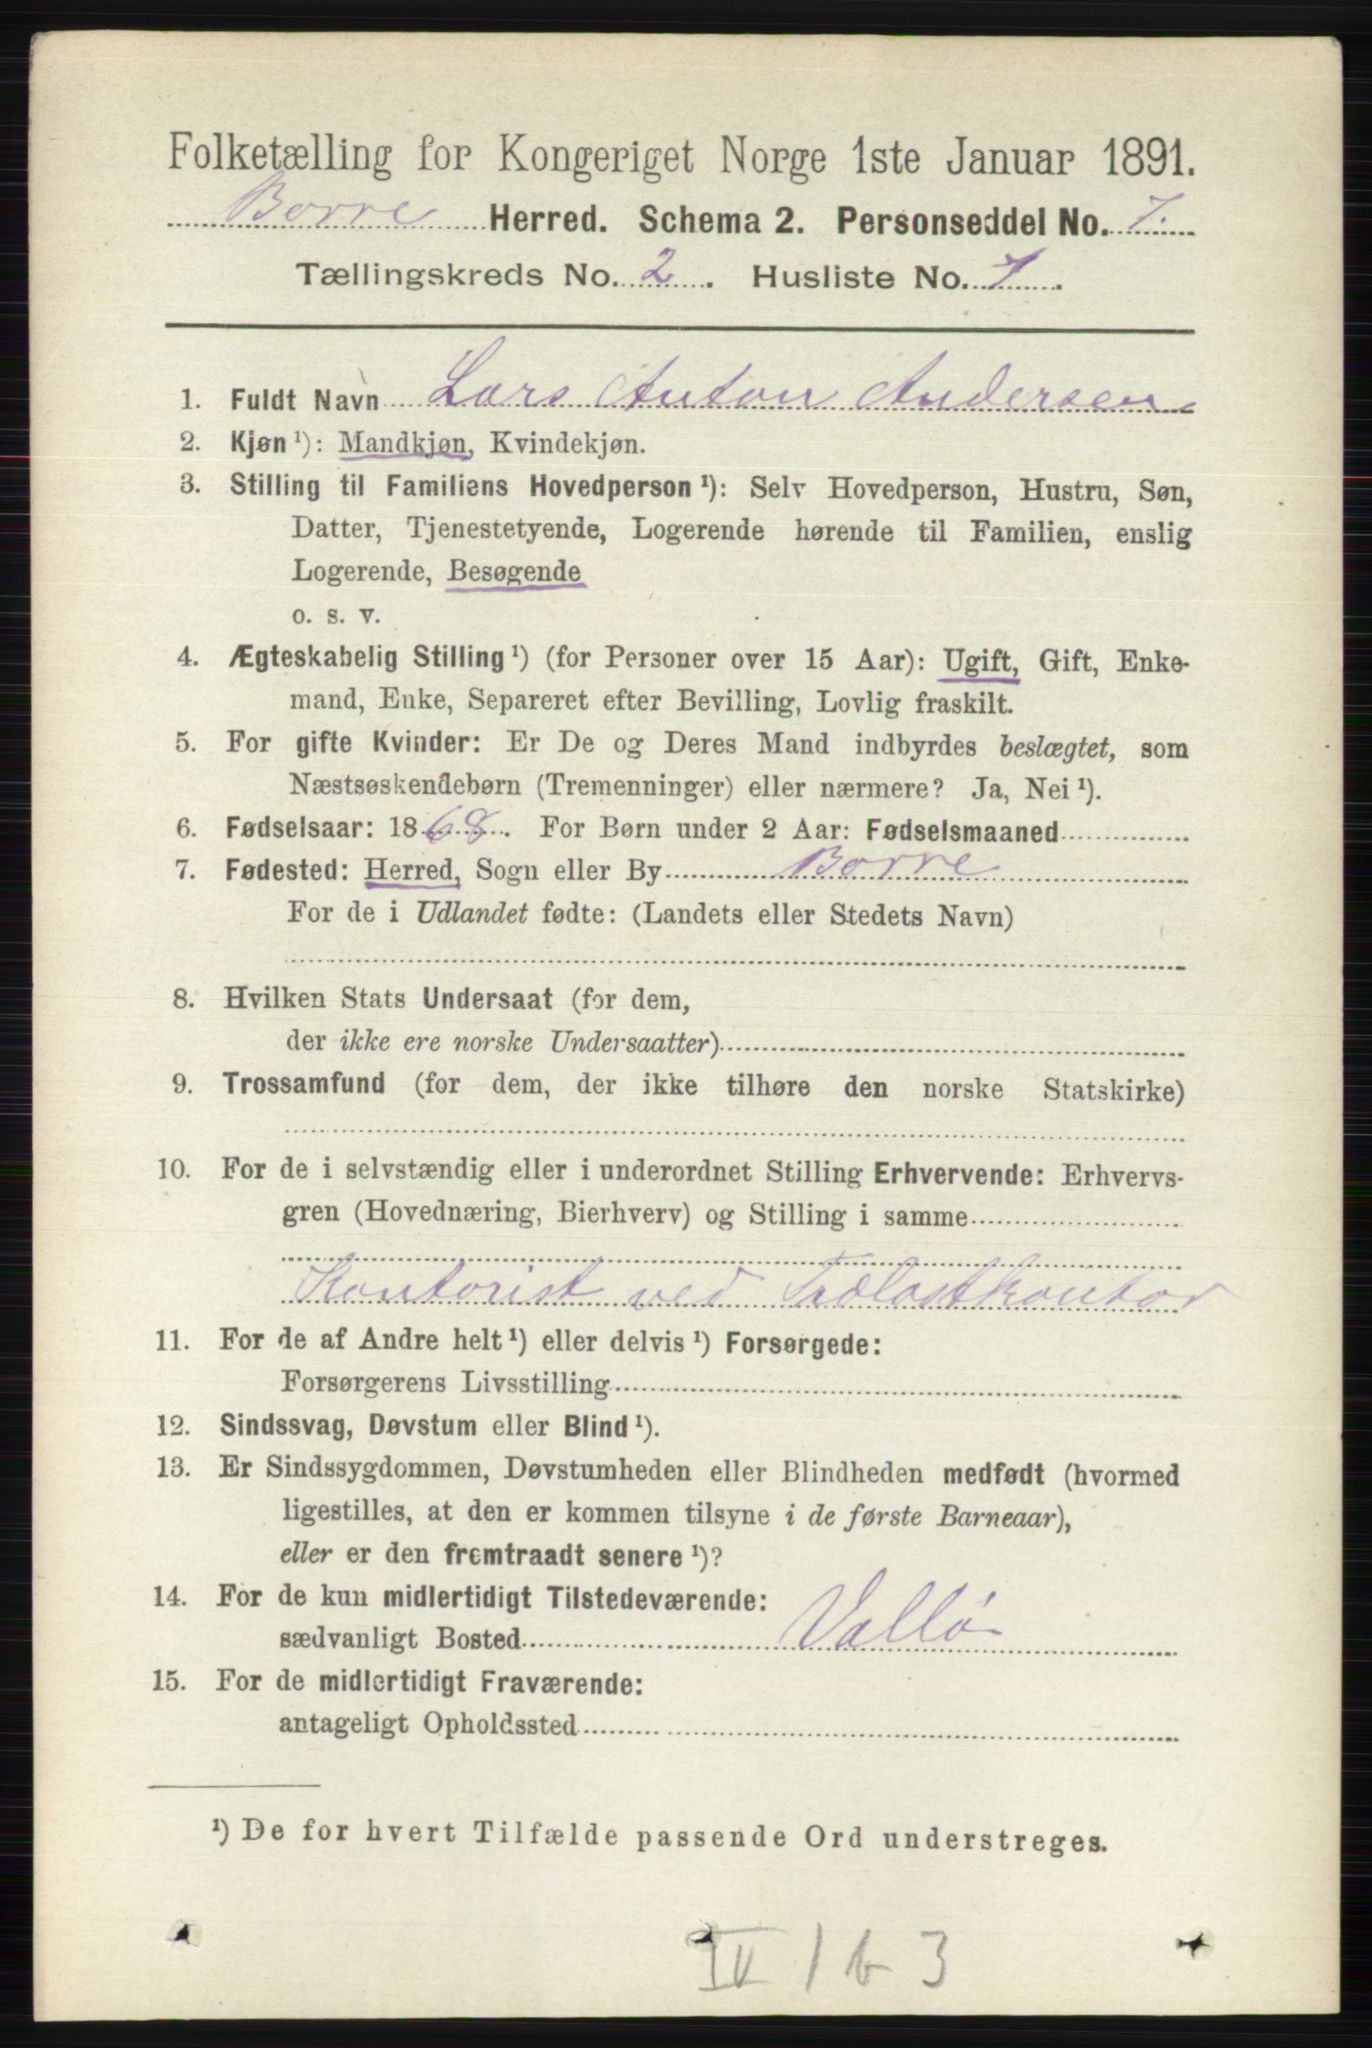 Folketælling for Kongeriget Norge 1ste Januar 1891.
Borre Herred. Schema 2. Personseddel No. 7.
Tællingskreds No. 2. Husliste No. 1.
1. Fuldt Navn Lars Anton Andersen
2. Kjøn ¹): Mandkjøn, Kvindekjøn.
3. Stilling til Familiens Hovedperson ¹): Selv Hovedperson, Hustru, Søn,
Datter, Tjenestetyende, Logerende hørende til Familien, enslig
Logerende, Besøgende
o. s. v.
4. Ægteskabelig Stilling ¹) (for Personer over 15 Aar): Ugift, Gift, Enke-
mand, Enke, Separeret efter Bevilling, Lovlig fraskilt.
5. For gifte Kvinder: Er De og Deres Mand indbyrdes beslægtet, som
Næstsøskendebørn (Tremenninger) eller nærmere? Ja, Nei ¹).
6. Fødselsaar: 1868. For Børn under 2 Aar: Fødselsmaaned
7. Fødested: Herred, Sogn eller By Borre
For de i Udlandet fødte: (Landets eller Stedets Navn)
8. Hvilken Stats Undersaat (for dem,
der ikke ere norske Undersaatter)
9. Trossamfund (for dem, der ikke tilhøre den norske Statskirke)
10. For de i selvstændig eller i underordnet Stilling Erhvervende: Erhvervs-
gren (Hovednæring, Bierhverv) og Stilling i samme
Kontorist ved Trælastkontor
11. For de af Andre helt ¹) eller delvis ¹) Forsørgede:
Forsørgerens Livsstilling
12. Sindssvag, Døvstum eller Blind ¹).
13. Er Sindssygdommen, Døvstumheden eller Blindheden medfødt (hvormed
ligestilles, at den er kommen tilsyne i de første Barneaar),
eller er den fremtraadt senere ¹)?
14. For de kun midlertidigt Tilstedeværende:
sædvanligt Bosted Vallø
15. For de midlertidigt Fraværende:
antageligt Opholdssted
¹) De for hvert Tilfælde passende Ord understreges.
IV 1 b 3